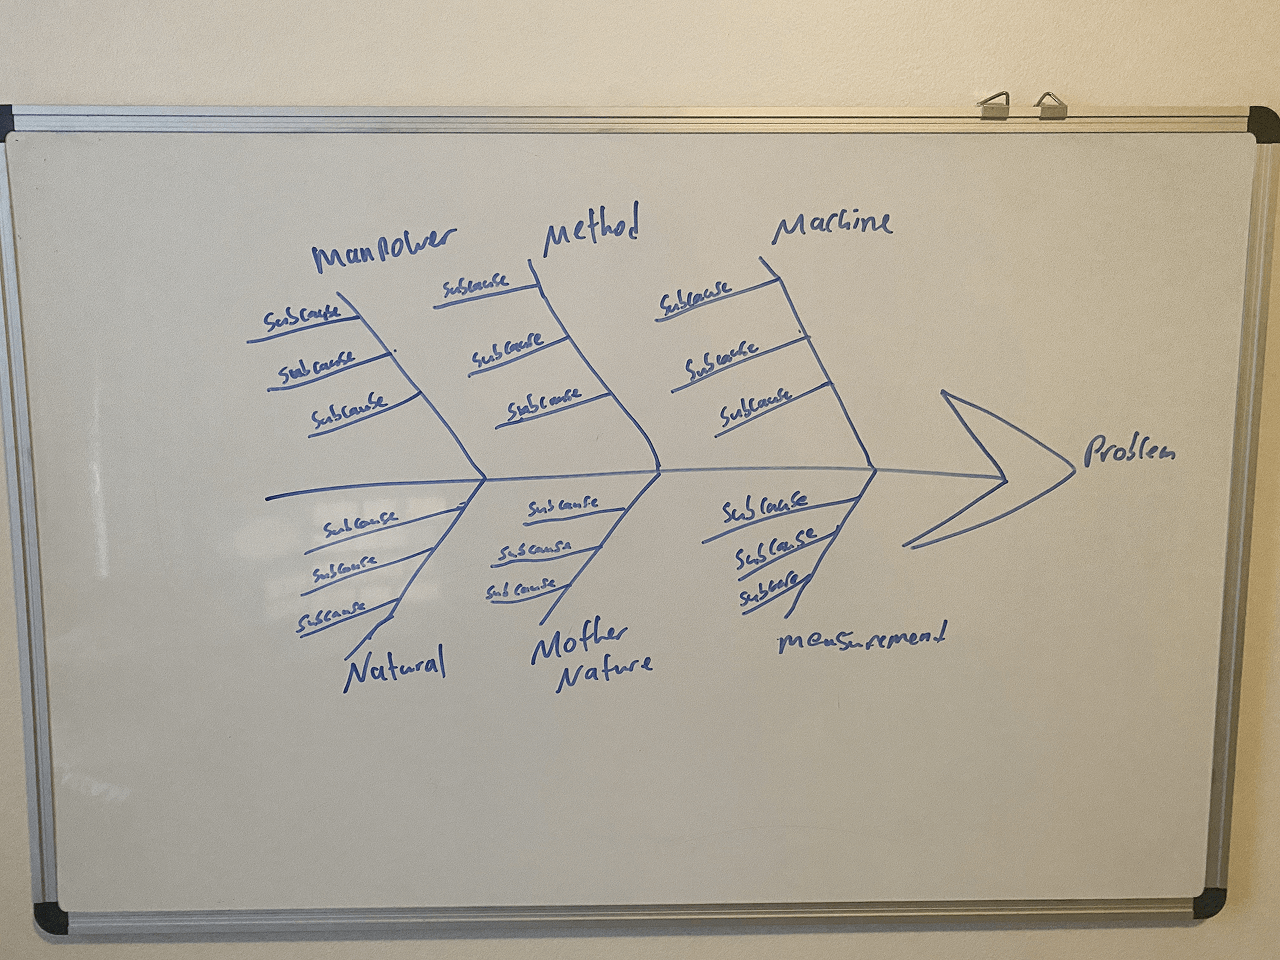 Manpower
Method
Machine
Subcause
Subcause
Subcause
Subcause
Subcause
Subcause
Subcause
Subcause
Subcause
Problem
Subcause
Subcause
Subcause
Subcause
Subcause
Subcause
Subcause
Subcause
Natural
Mother
Nature
Measurement